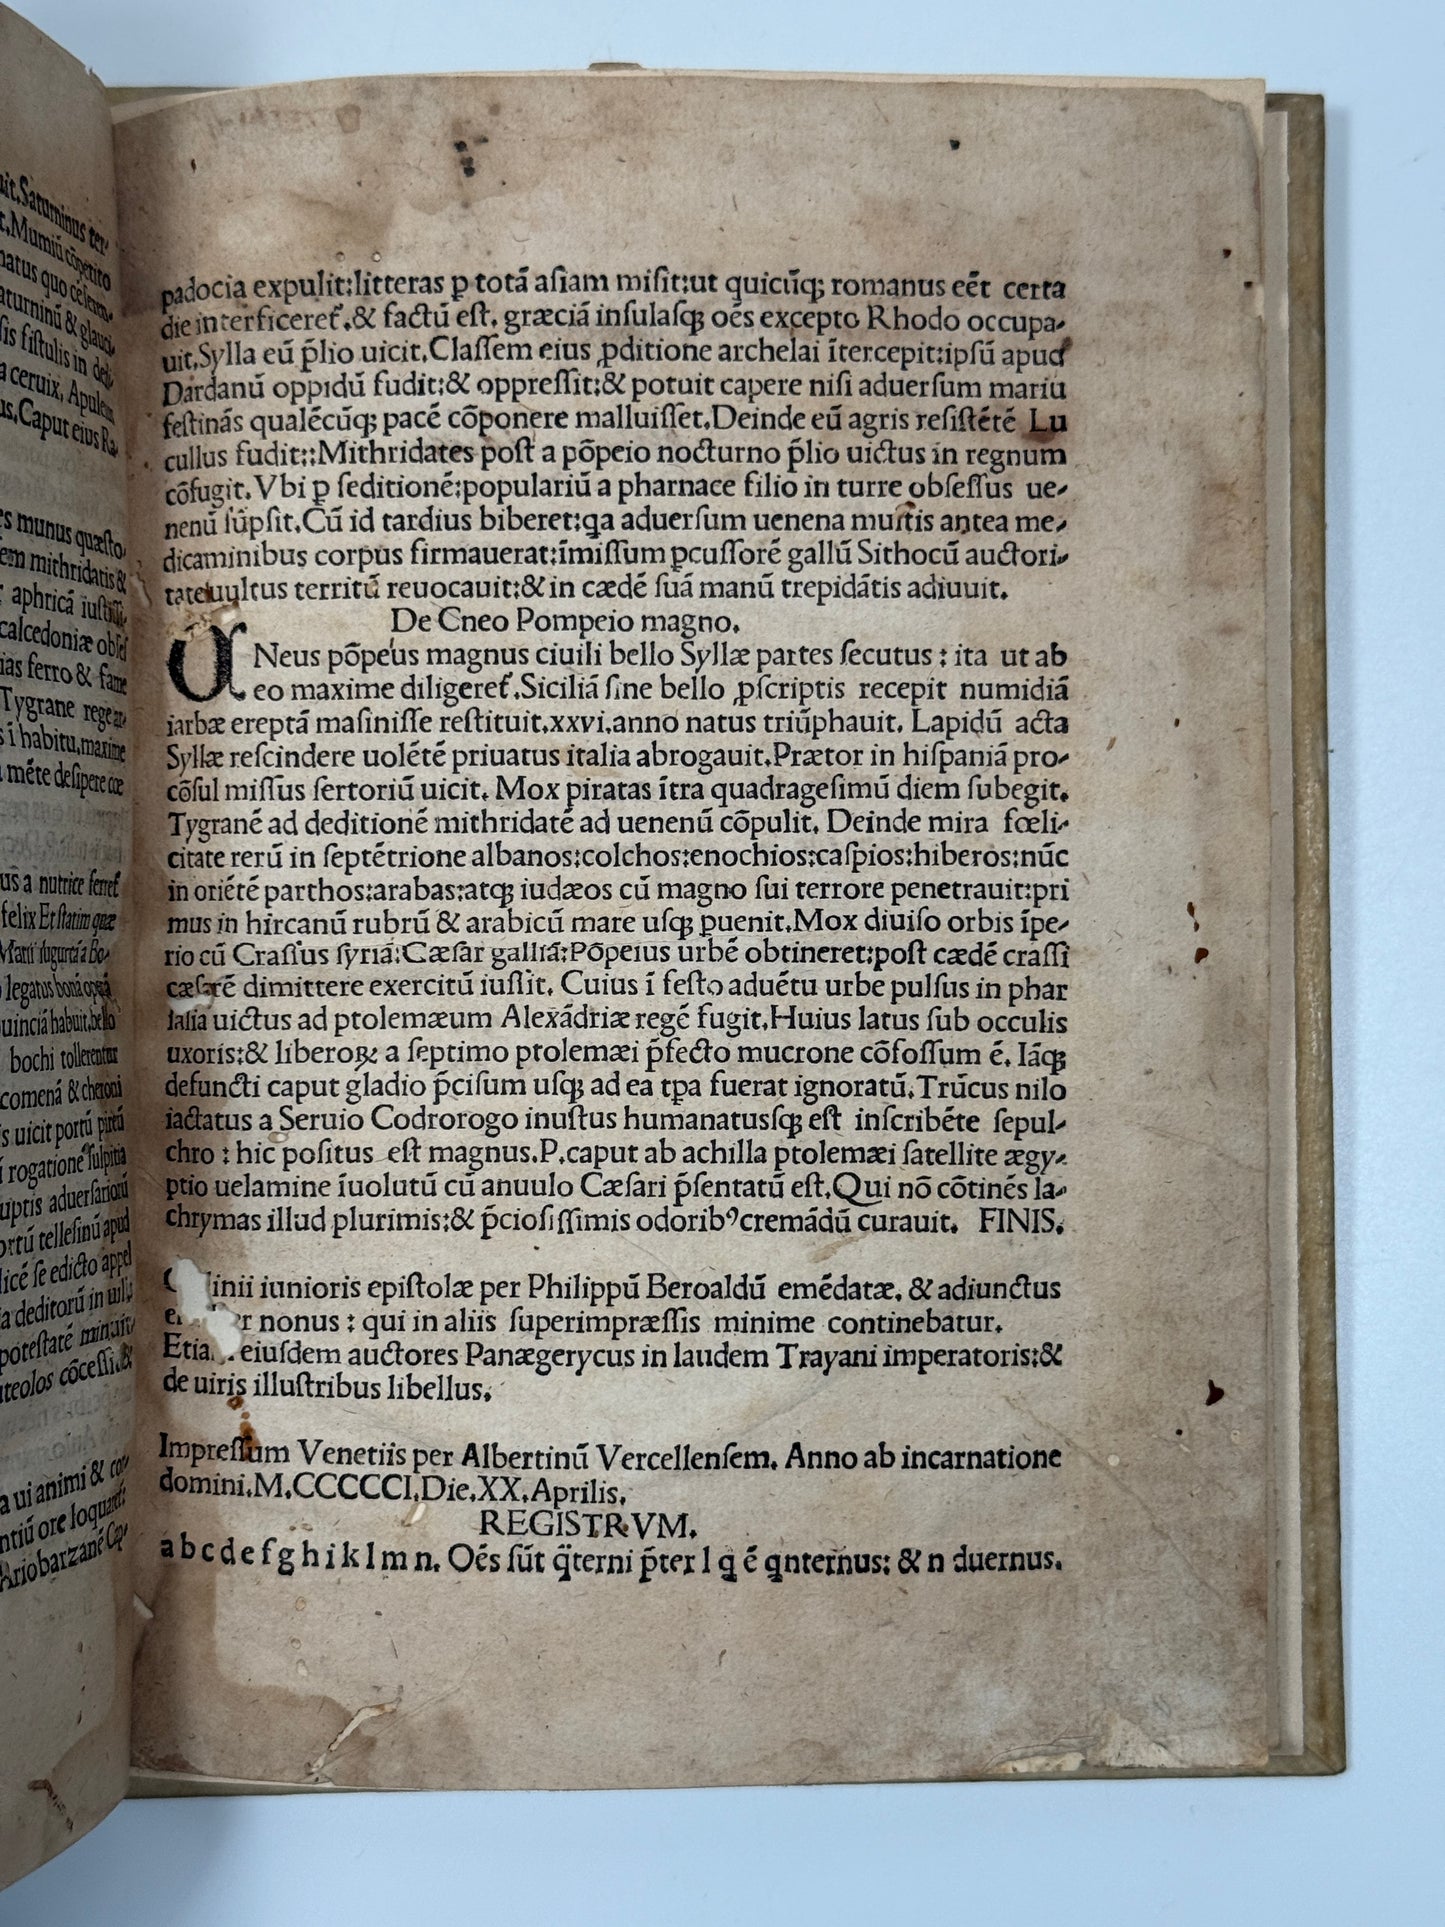 uit.Saturninus ter-
t.Mumiũ cõpetito
natus quo celeren-
aturninũ & glauci
sis fiſtulis in dei
a ceruix. Apulem
us.Caput eius Ra
es munus quæſto-
em mithridatis &
aphricã iuſtiſſi
calcedoniæ obſeſ
ias ferro & fame
Tygrane rege ar-
s ĩ habitu,maxime
mẽte deſipere cœ
us a nutrice ferreƭ
felix Et ſtatim quæ
Marii Iugurtã a Bo-
legatus bonã operã
uinciã habuit,bello
bochi tollerentur
comenã & cheroni
s uicit portũ pirtũ
ĩ rogatione ſulpitia
uptis aduerſariorũ
ortũ telleſinũ apud
licẽ ſe edicto appel
ia deditorũ in uilla
poteſtatẽ minuit.
uteolos cõceſſi.&
a ui animi & cor-
ntiũ ore loquareƭ
Ariobarzanẽ Cap-
padocia expulit:litteras ꝑ totã aſiam miſit:ut quicũꝗ; romanus eẽt certa
die interficereƭ.& factũ eſt. græciã inſulaſꝗ; oẽs excepto Rhodo occupa-
uit.Sylla eũ p̃lio uicit.Claſſem eius ꝓditione archelai ĩtercepit:ipſũ apud
Dardanũ oppidũ fudit:& oppreſſit:& potuit capere niſi aduerſum mariu
feſtinãs qualẽcũꝗ; pacẽ cõponere malluiſſet.Deinde eũ agris reſiſtẽtẽ Lu
cullus fudit::Mithridates poſt a põpeio nocturno p̃lio uictus in regnum
cõfugit.Vbi ꝑ ſeditionẽ:populariũ a pharnace filio in turre obſeſſus ue-
nenũ ſũpſit.Cũ id tardius biberet:ꝗa aduerſum uenena multis antea me-
dicaminibus corpus firmauerat:ĩmiſſum ꝑcuſſorẽ gallũ Sithocũ auctori-
tate uultus territũ reuocauit:& in cædẽ ſuã manũ trepidãtis adiuuit.
De Cneo Pompeio magno.
GNeus põpeius magnus ciuili bello Syllæ partes ſecutus : ita ut ab
eo maxime diligereƭ.Siciliã ſine bello ꝓſcriptis recepit numidiã
iarbæ ereptã maſiniſſe reſtituit.xxvi.anno natus triũphauit. Lapidũ acta
Syllæ reſcindere uolẽtẽ priuatus italia abrogauit.Prætor in hiſpaniã pro-
cõſul miſſus ſertoriũ uicit. Mox piratas ĩtra quadrageſimũ diem ſubegit.
Tygranẽ ad deditionẽ mithridatẽ ad uenenũ cõpulit. Deinde mira fœli-
citate rerũ in ſeptẽtrione albanos:colchos:enochios:caſpios:hiberos:nũc
in oriẽtẽ parthos:arabas:atꝗ; iudæos cũ magno ſui terrore penetrauit:pri
mus in hircanũ rubrũ & arabicũ mare uſꝗ; ꝑuenit.Mox diuiſo orbis ĩpe-
rio cũ Craſſus ſyriã:Cæſar galliã:Põpeius urbẽ obtineret:poſt cædẽ craſſi
cæſarẽ dimittere exercitũ iuſſit. Cuius ĩ feſto aduẽtu urbe pulſus in phar
ſalia uictus ad ptolemæum Alexãdriæ regẽ fugit.Huius latus ſub occulis
uxoris:& liberoꝝ a ſeptimo ptolemæi p̃fecto mucrone cõfoſſum ẽ. Iãꝗ;
defuncti caput gladio p̃ciſum uſꝗ; ad ea tꝑa fuerat ignoratũ.Trũcus nilo
iactatus a Seruio Codrorogo inuſtus humanatusſꝗ; eſt inſcribẽte ſepul-
chro : hic poſitus eſt magnus.P.caput ab achilla ptolemæi ſatellite ægy-
ptio uelamine ĩuolutũ cũ anuulo Cæſari p̃ſentatũ eſt.Qui nõ cõtinẽs la-
chrymas illud plurimis:& p̃cioſiſſimis odoribꝰcremãdũ curauit. FINIS.
linii iunioris epiſtolæ per Philippũ Beroaldũ emẽdatæ. & adiunctus
nonus : qui in aliis ſuperimpræſſis minime continebatur.
Etia eiuſdem auctores Panægerycus in laudem Trayani imperatoris:&
de uiris illuſtribus libellus.
Impreſſum Venetiis per Albertinũ Vercellenſem. Anno ab incarnatione
domini.M.CCCCCI.Die.XX.Aprilis.
REGISTRVM.
a b c d e f g h i k l m n. Oẽs ſũt q̃terni p̃ter l ꝗ ẽ ꝗnternus: & n duernus.